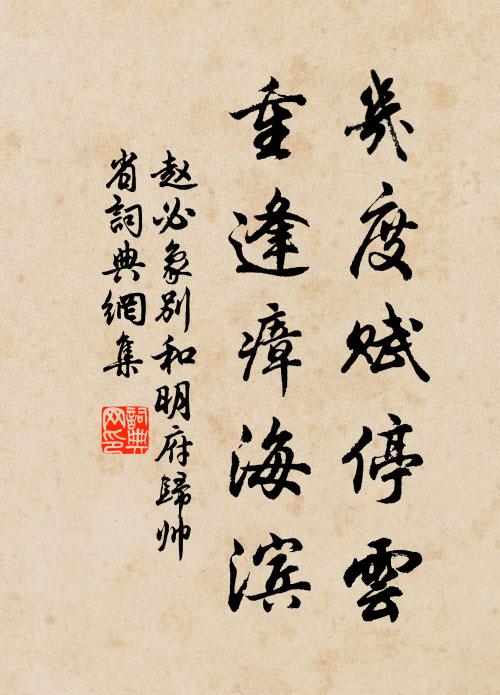 幾度賦停雲
重逢瘴海滨
赵必象别和明府歸帅
省詞典網集
詞典
网印